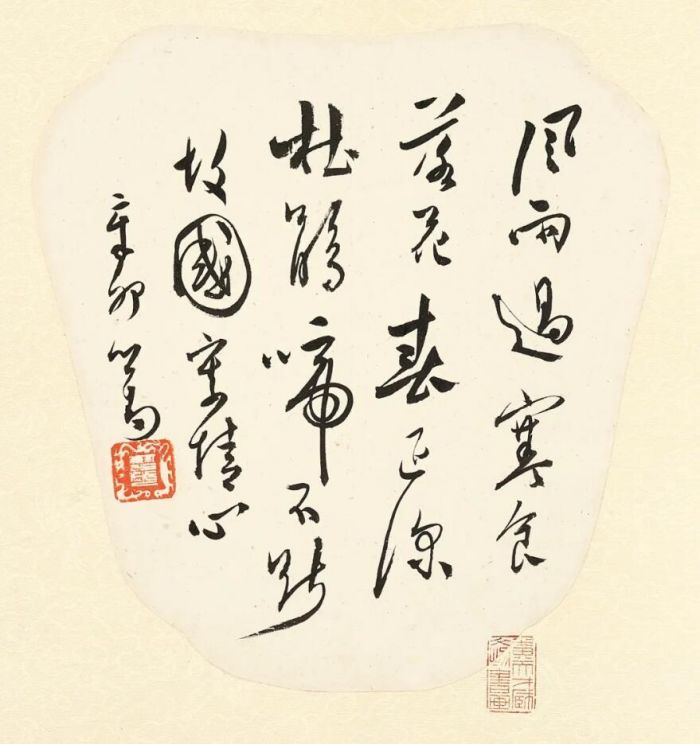 風雨過寒食
落花春已深
杜鵑啼不斷
故國情心
辛卯 心畬